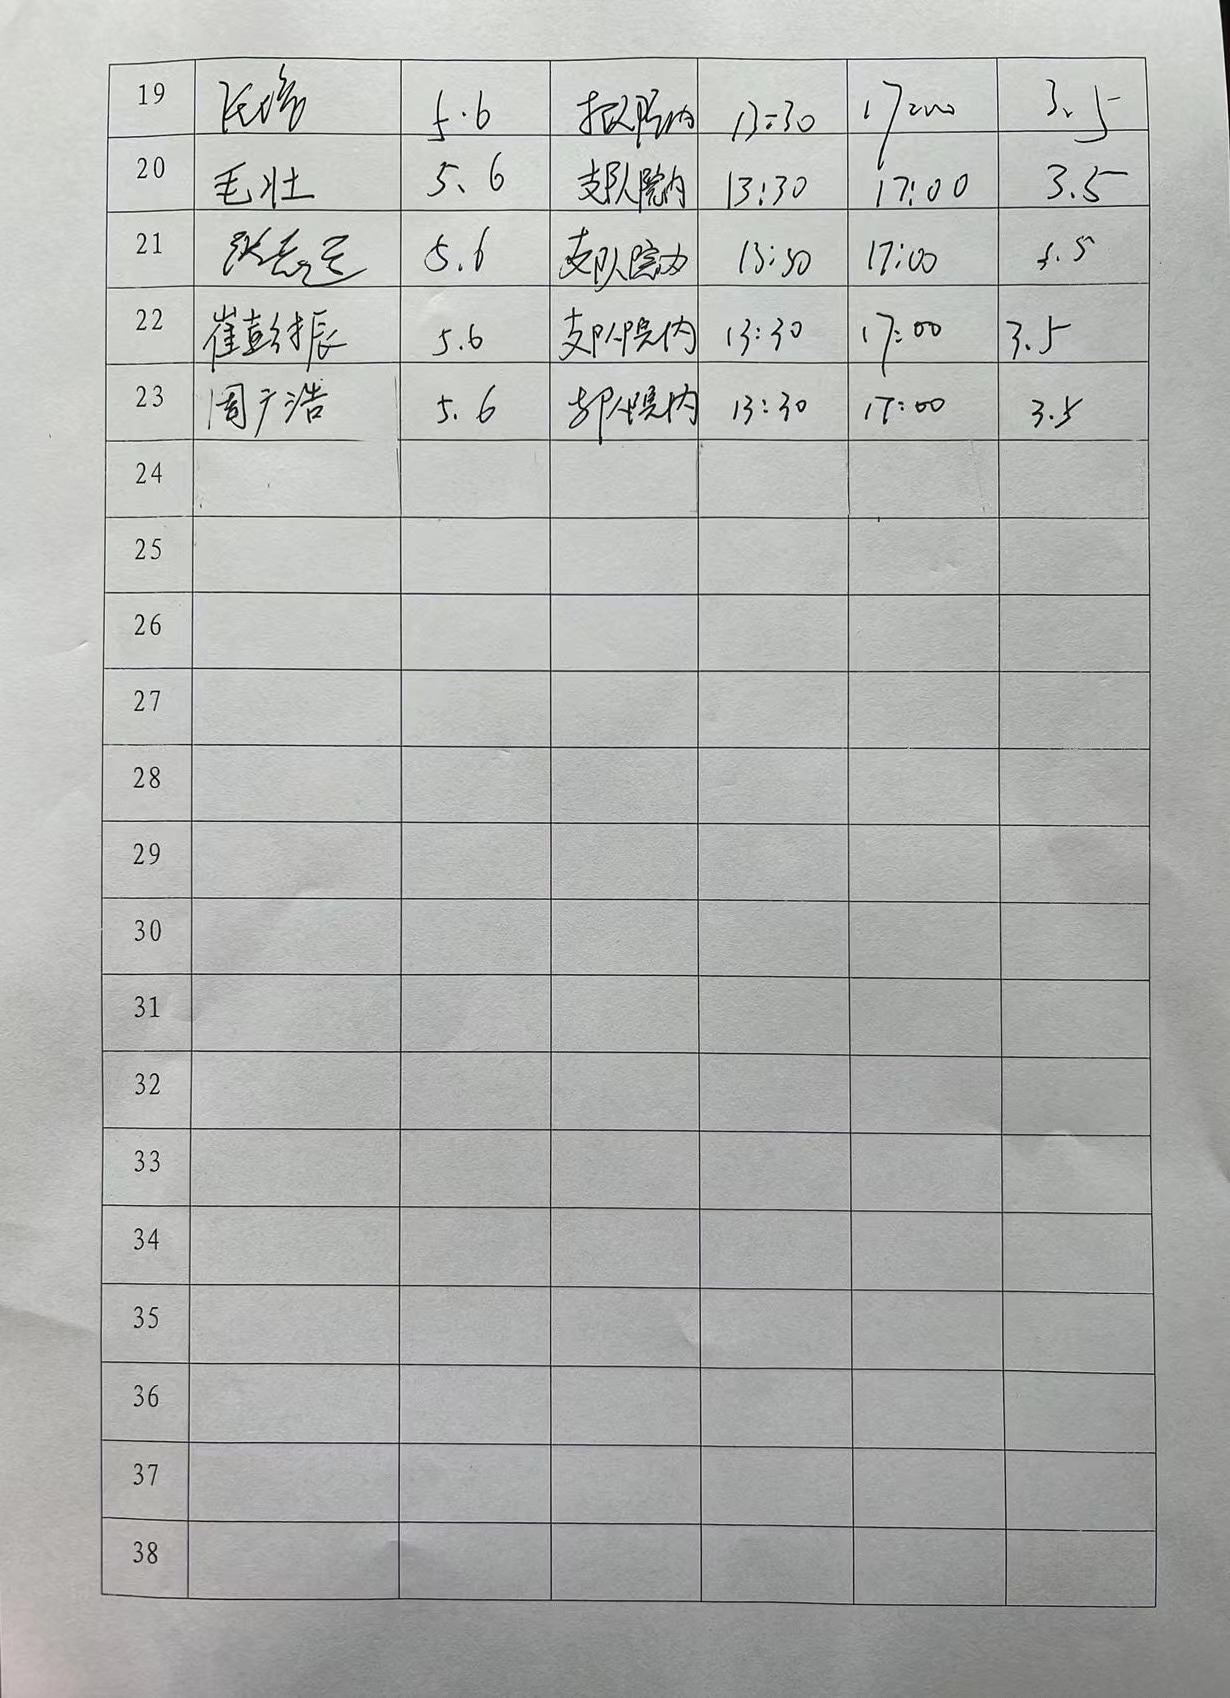 19 5.6 支队院内 13:30 17:00 3.5
20 毛壮 5.6 支队院内 13:30 17:00 3.5
21 5.6 支队院内 13:30 17:00 3.5
22 崔彭振 5.6 支队院内 13:30 17:00 3.5
23 周广浩 5.6 支队院内 13:30 17:00 3.5
24
25
26
27
28
29
30
31
32
33
34
35
36
37
38